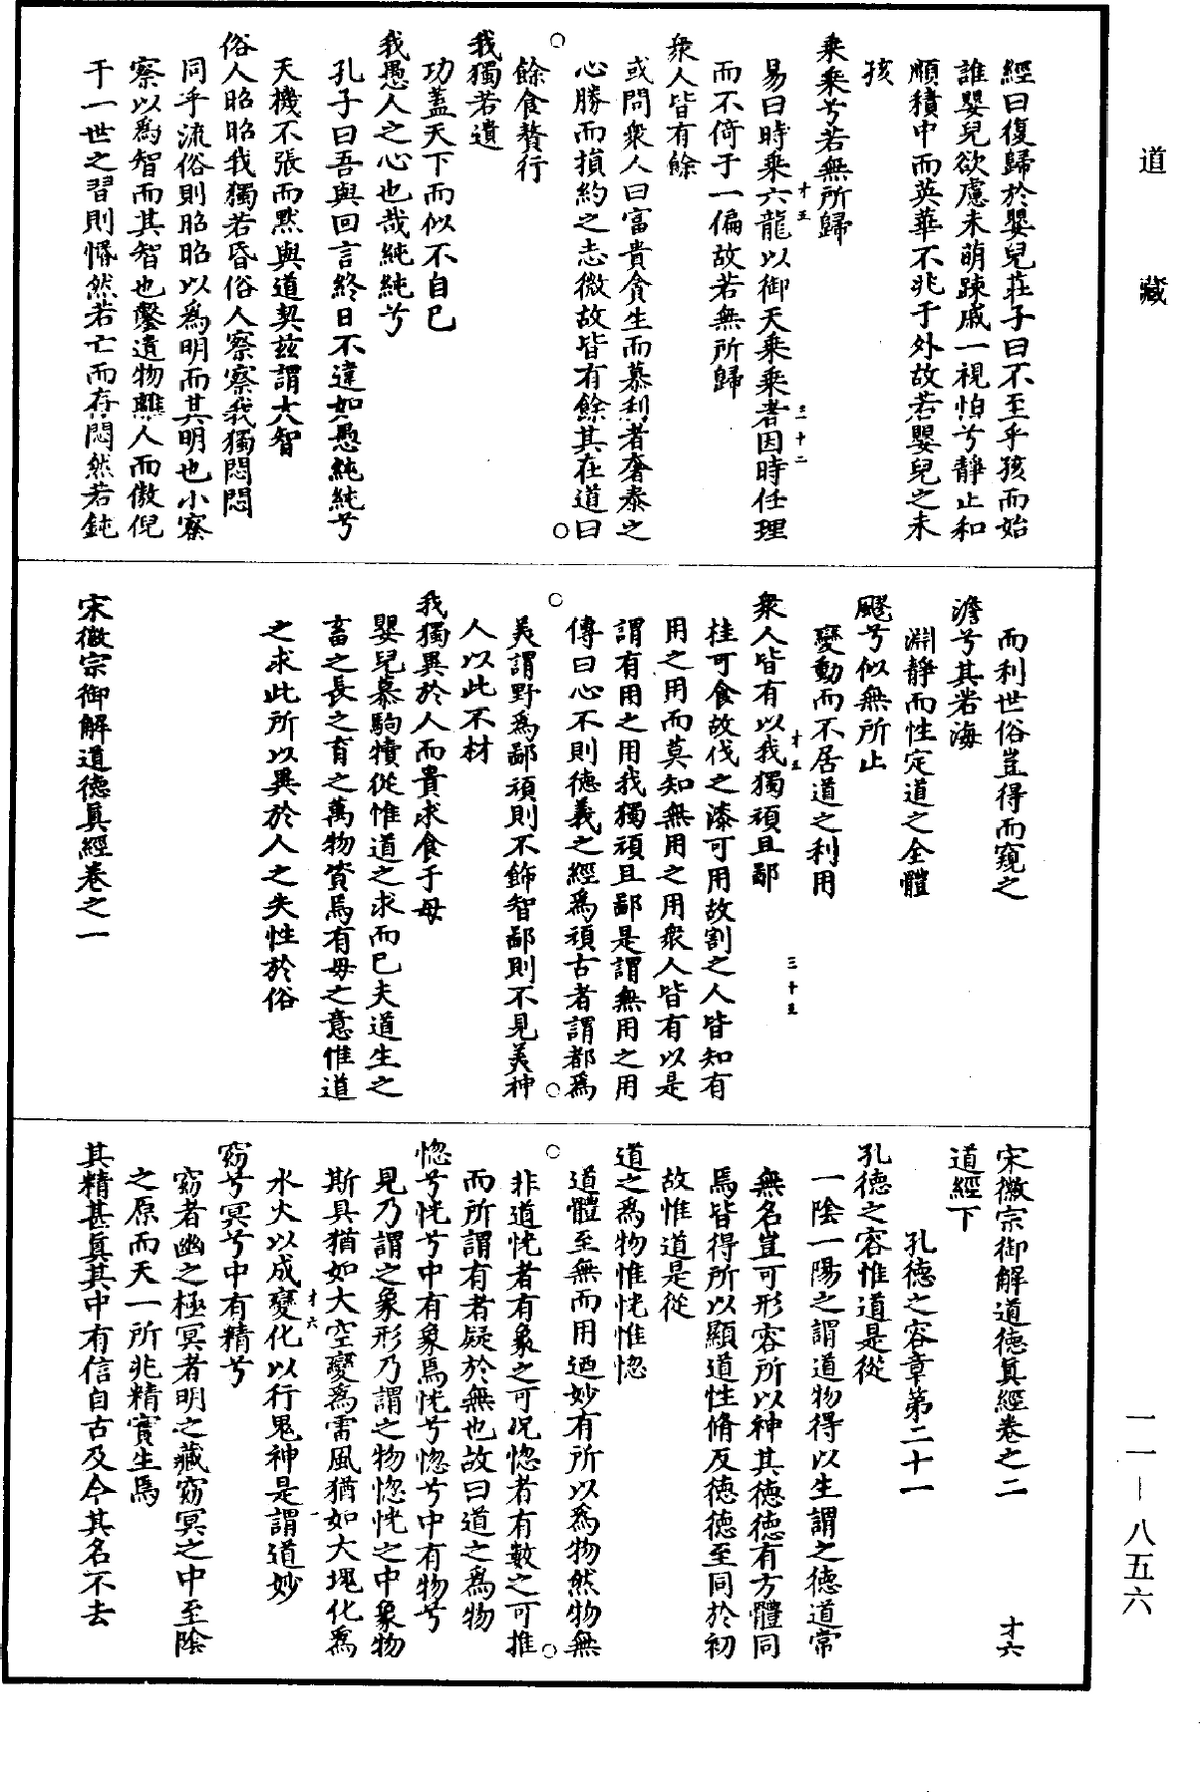 道藏
經曰復歸於嬰兒莊子曰不至乎孩而始
誰嬰兒欲慮未萌踈戚一視怕兮靜止和
順積中而英華不兆于外故若嬰兒之未
孩
乘乘兮若無所歸
易曰時乘六龍以御天乘乘者因時任理
而不倚于一偏故若無所歸
衆人皆有餘
或問衆人曰富貴貪生而慕利者奢泰之
心勝而損約之志微故皆有餘其在道曰
餘食贅行
我獨若遺
功蓋天下而似不自已
我愚人之心也哉純純兮
孔子曰吾與回言終日不違如愚純純兮
天機不張而默與道契兹謂大智
俗人昭昭我獨若昏俗人察察我獨悶悶
同乎流俗則昭昭以爲明而其明也小察
察以爲智而其智也鑿遺物離人而傲倪
于一世之習則惛然若亡而存悶然若鈍
而利世俗豈得而窺之
澹兮其若海
淵靜而性定道之全體
飂兮似無所止
變動而不居道之利用
衆人皆有以我獨頑且鄙
桂可食故伐之漆可用故割之人皆知有
用之用而莫知無用之用衆人皆有以是
謂有用之用我獨頑且鄙是謂無用之用
傳曰心不則德義之經爲頑古者謂都爲
美謂野爲鄙頑則不飾智鄙則不見美神
人以此不材
我獨異於人而貴求食于母
嬰兒慕駒犢從惟道之求而已夫道生之
畜之長之育之萬物資焉有母之意惟道
之求此所以異於人之失性於俗
宋徽宗御解道德眞經卷之一
宋徽宗御解道德眞經卷之二 才六
道經下
孔德之容章第二十一
孔德之容惟道是從
一陰一陽之謂道物得以生謂之德道常
無名豈可形容所以神其德德有方體同
焉皆得所以顯道性脩反德德至同於初
故惟道是從
道之爲物惟恍惟惚
道體至無而用迺妙有所以爲物然物無
非道恍者有象之可况惚者有數之可推
而所謂有者疑於無也故曰道之爲物
惚兮恍兮中有象焉恍兮惚兮中有物兮
見乃謂之象形乃謂之物惚恍之中象物
斯具猶如大空變爲雷風猶如大塊化爲
水火以成變化以行鬼神是謂道妙
窈兮冥兮中有精兮
窈者幽之極冥者明之藏窈冥之中至陰
之原而天一所兆精實生焉
其精甚眞其中有信自古及今其名不去
一一—八五六